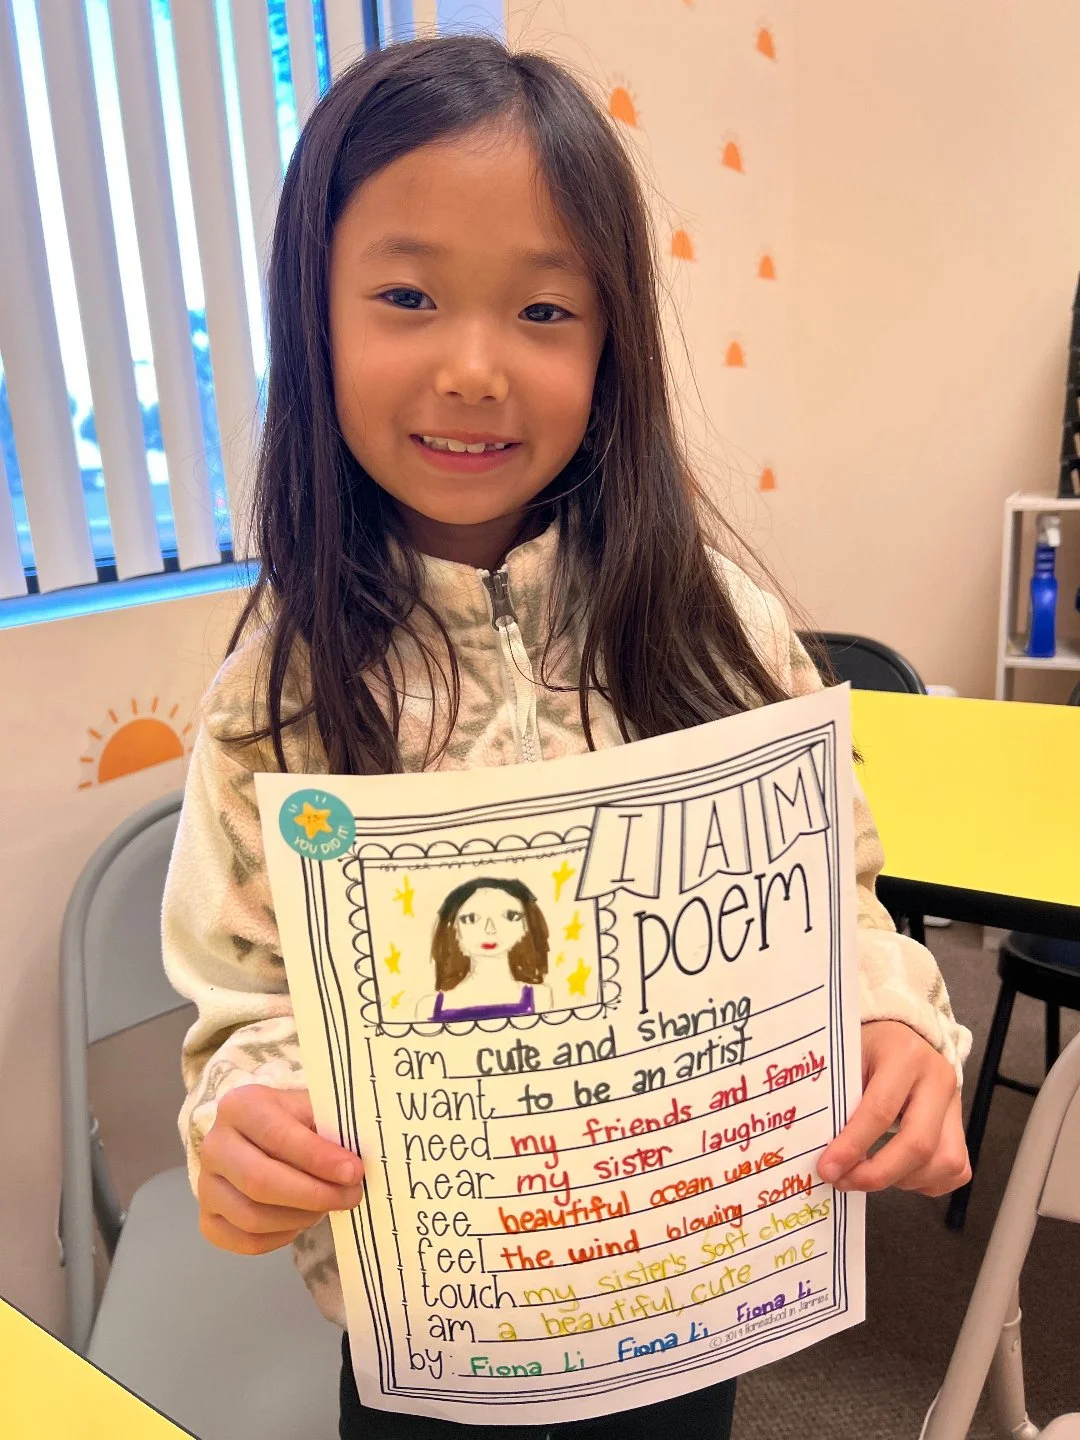 YOU DID IT
I AM
poem
I am cute and sharing
I want to be an artist
I need my friends and family
I hear my sister laughing
I see beautiful ocean waves
I feel the wind blowing softly
I touch my sister's soft cheeks
I am a beautiful, cute me
by: Fiona Li Fiona Li Fiona Li
© 2019 Homeschool in Jammies